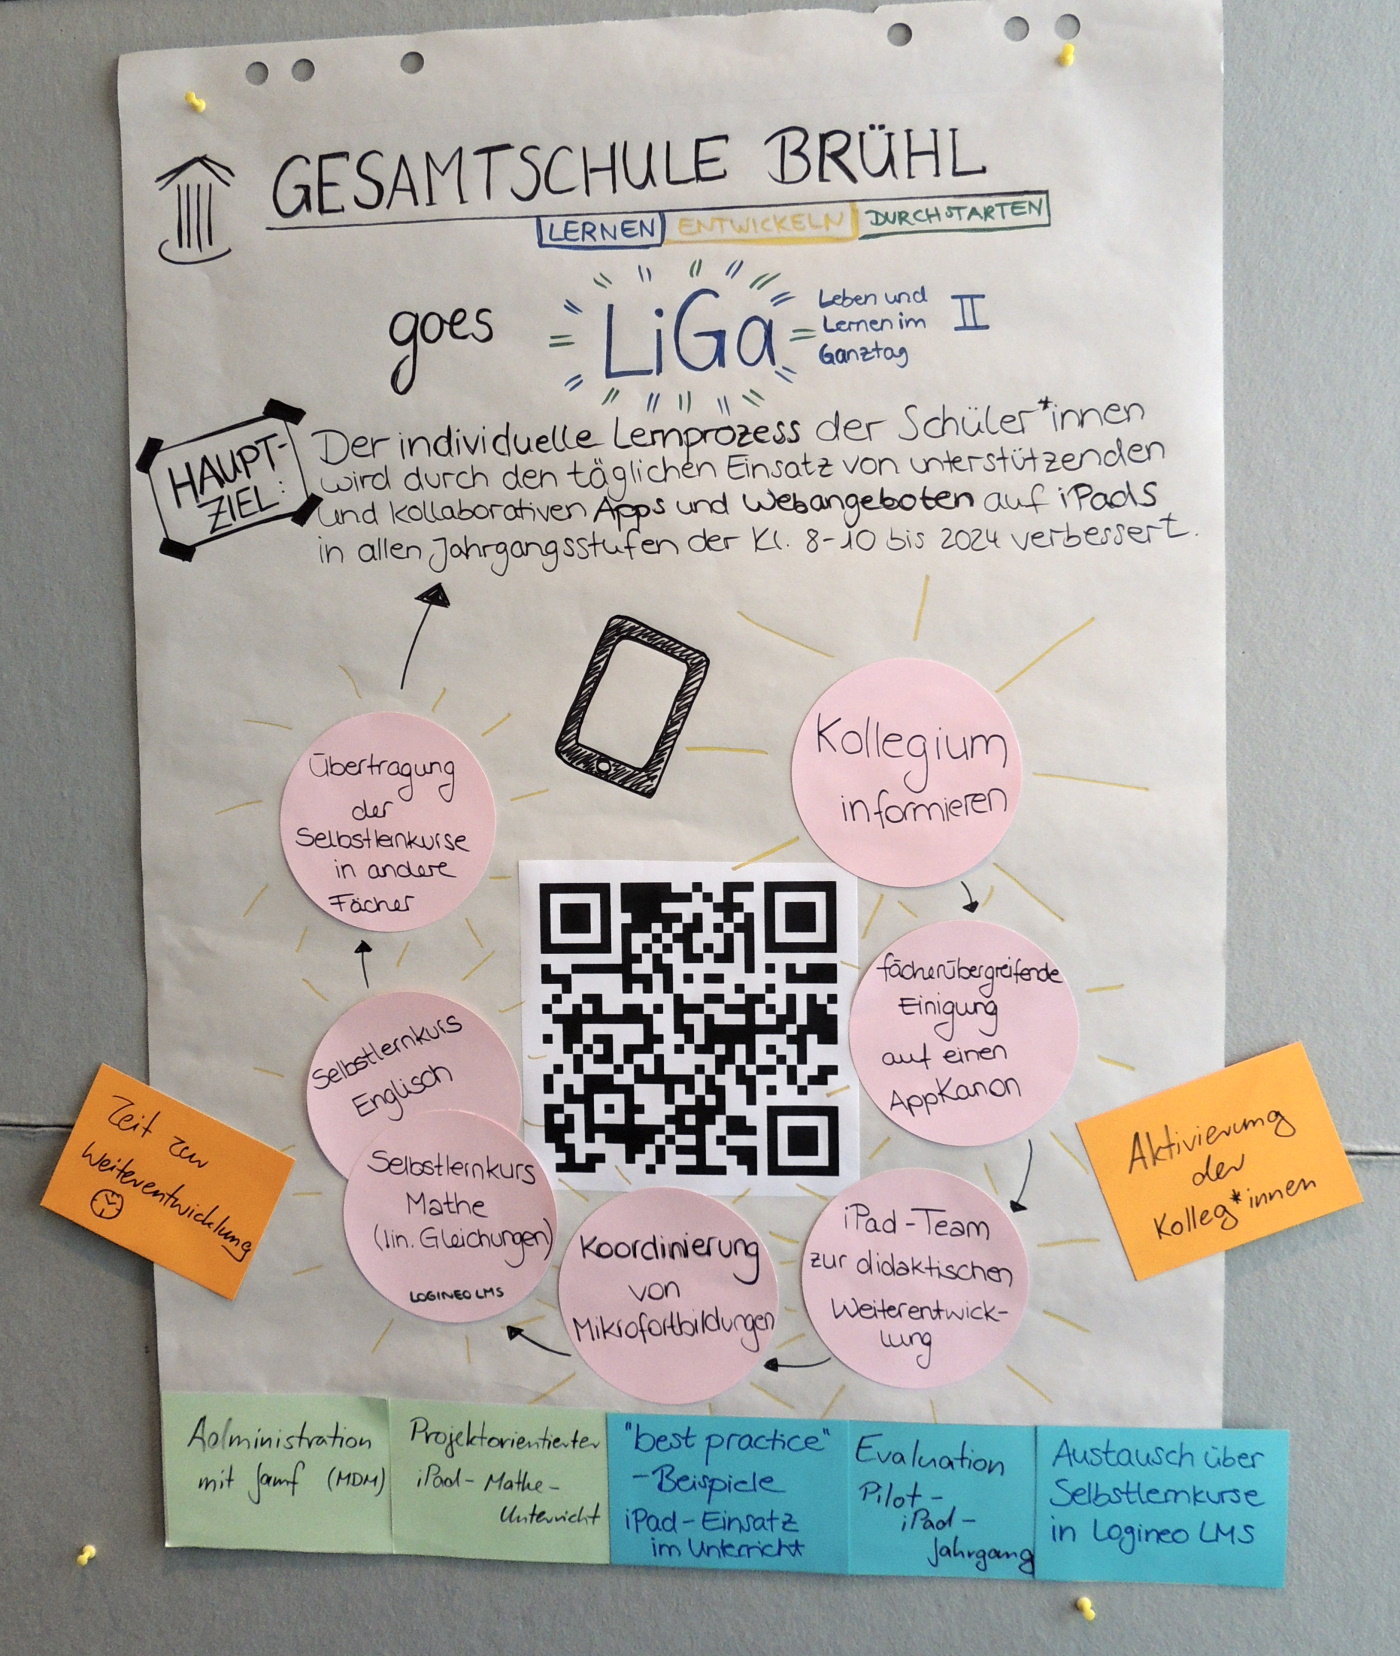 GESAMTSCHULE BRÜHL
LERNEN ENTWICKELN DURCHSTARTEN
goes
LiGa
Leben und
Lernen im
Ganztag
II
HAUPT-
ZIEL:
Der individuelle Lernprozess der Schüler*innen
wird durch den täglichen Einsatz von unterstützenden
und kollaborativen Apps und Webangeboten auf iPads
in allen Jahrgangsstufen der Kl. 8-10 bis 2024 verbessert.
Kollegium
informieren
fächerübergreifende
Einigung
auf einen
AppKanon
iPad-Team
zur didaktischen
Weiterentwick-
lung
Koordinierung
von
Mikrofortbildungen
Selbstlernkurs
Mathe
(lin. Gleichungen)
LOGINEO LMS
Selbstlernkurs
Englisch
Übertragung
der
Selbstlernkurse
in andere
Fächer
Zeit zur
Weiterentwicklung
Aktivierung
der
Kolleg*innen
Administration
mit Jamf (MDM)
Projektorientierter
iPad-Mathe-
Unterricht
"best practice"
-Beispiele
iPad-Einsatz
im Unterricht
Evaluation
Pilot-
iPad-
Jahrgang
Austausch über
Selbstlernkurse
in Logineo LMS